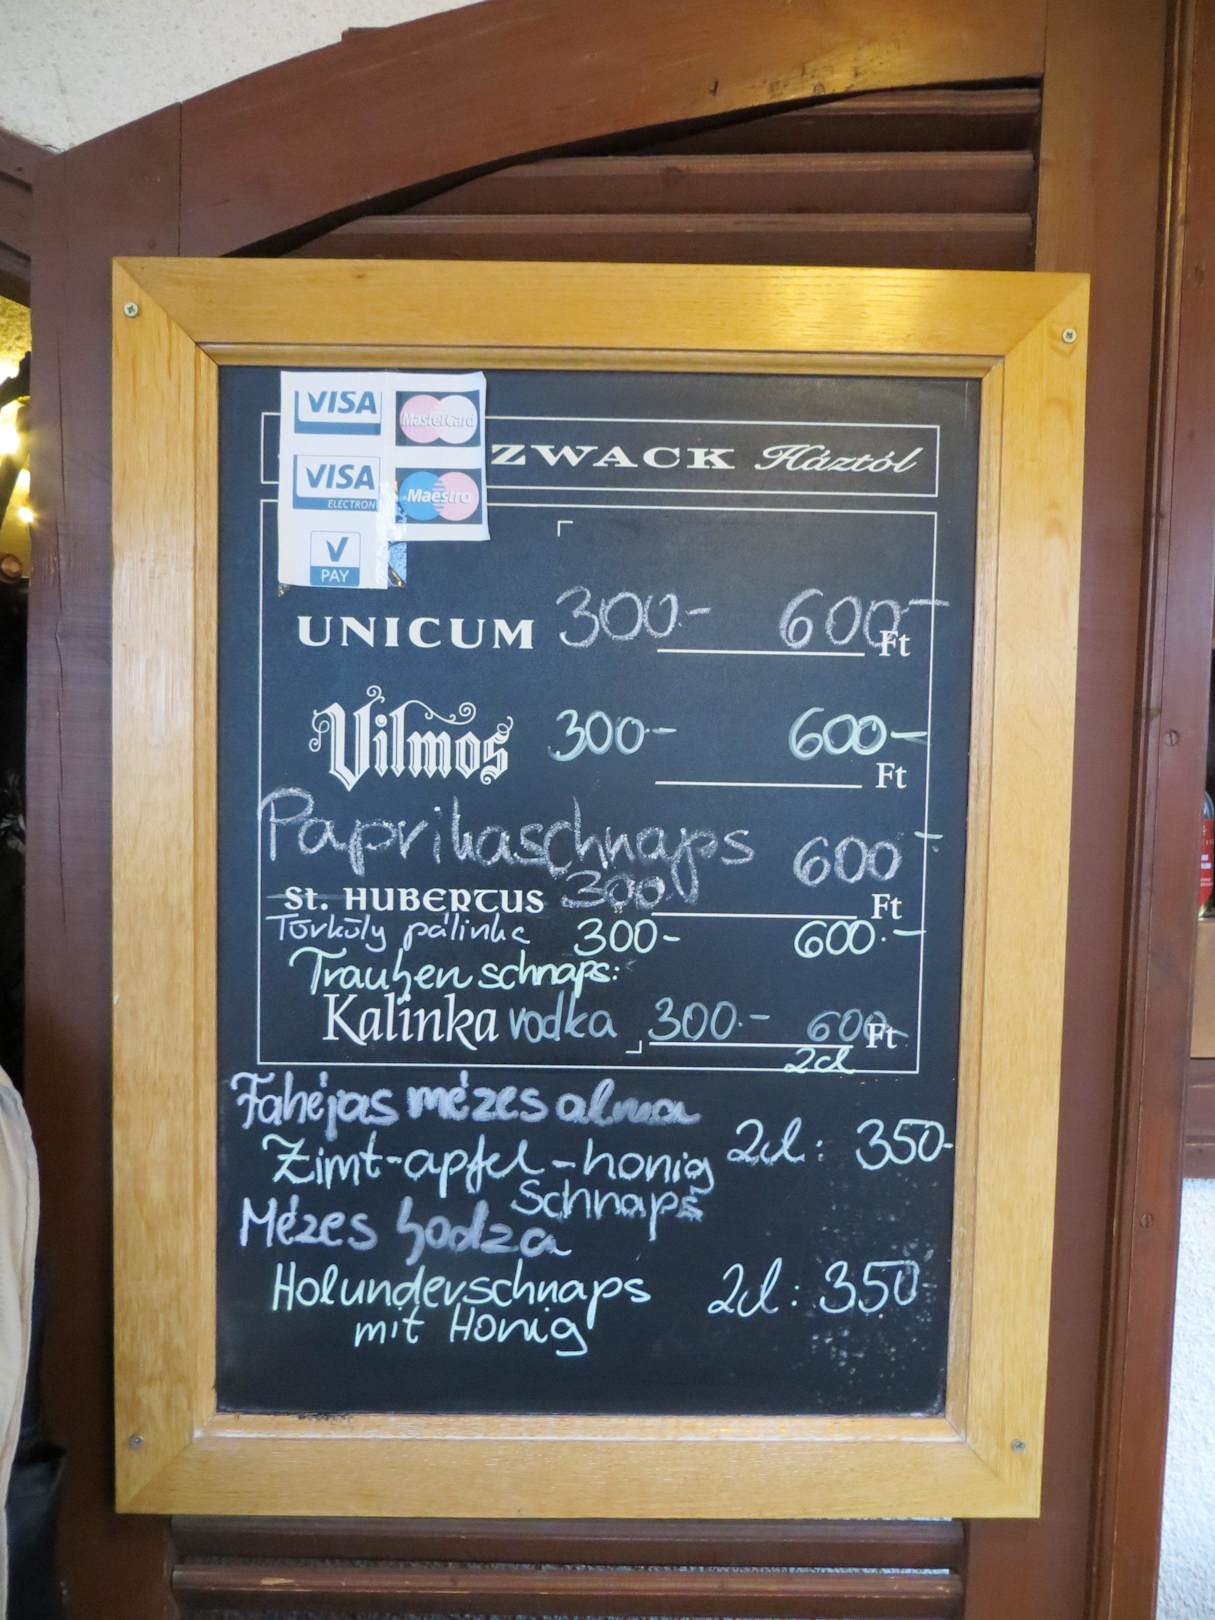 VISA MasterCard
ZWACK Háztól
VISA ELECTRON Maestro
V PAY
UNICUM 300.- 600.- Ft
Vilmos 300.- 600.- Ft
Paprikaschnaps 600.-
St. HUBERTUS 300.- Ft
Törköly pálinka 300.- 600.-
Traubenschnaps:
Kalinka vodka 300.- 600.- Ft
2cl
Fahéjas mézes alma
Zimt-apfel-honig 2cl: 350.-
Schnaps
Mézes bodza
Holunderschnaps 2cl: 350.-
mit Honig